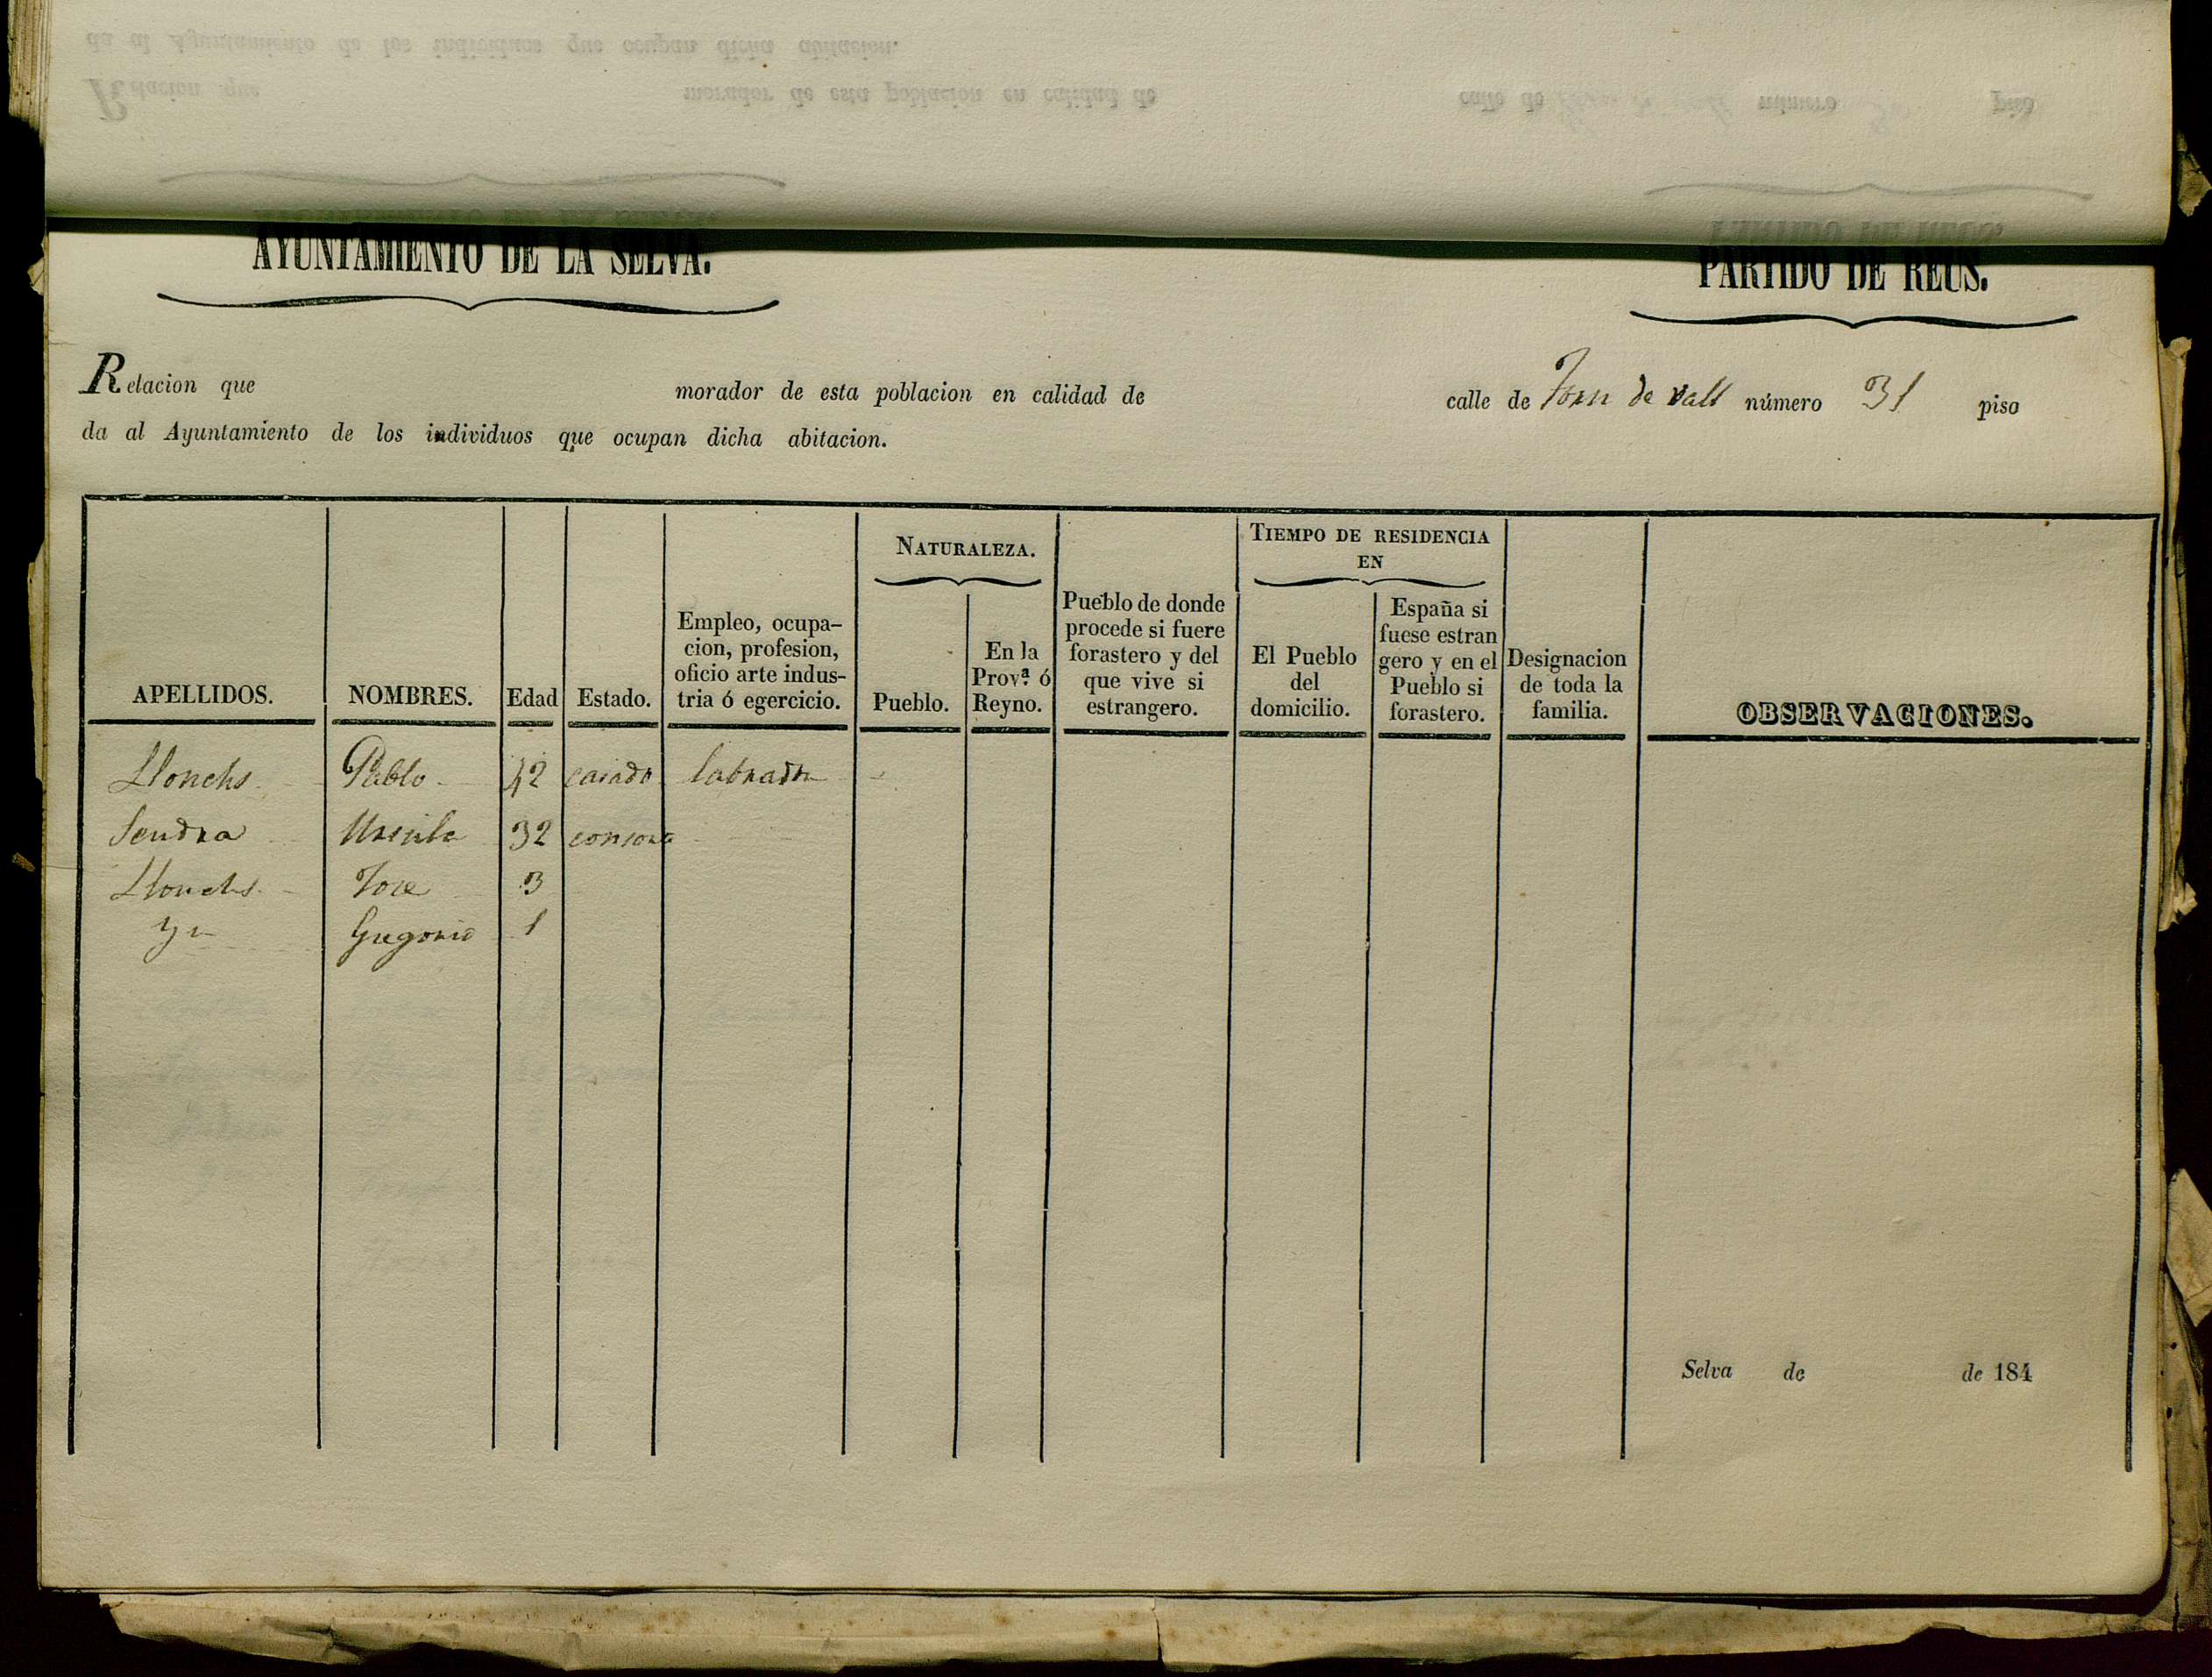 AYUNTAMIENTO DE LA SELVA. PARTIDO DE REUS.
Relacion que morador de esta poblacion en calidad de calle de Forn de vall número 31 piso
da al Ayuntamiento de los individuos que ocupan dicha abitacion.
APELLIDOS. NOMBRES. Edad Estado. Empleo, ocupa-
cion, profesion,
oficio arte indus-
tria ó egercicio.
NATURALEZA.
Pueblo. En la
Prov.ª ó
Reyno.
Pueblo de donde
procede si fuere
forastero y del
que vive si
estrangero.
TIEMPO DE RESIDENCIA
EN
El Pueblo
del
domicilio.
España si
fuese estran
gero y en el
Pueblo si
forastero.
Designacion
de toda la
familia.
OBSERVACIONES.
Llonchs Pablo 42 casado labrador
Sendra Ursula 32 consorte
Llonchs Jose 3
Yn Gregorio 1
Selva de de 184